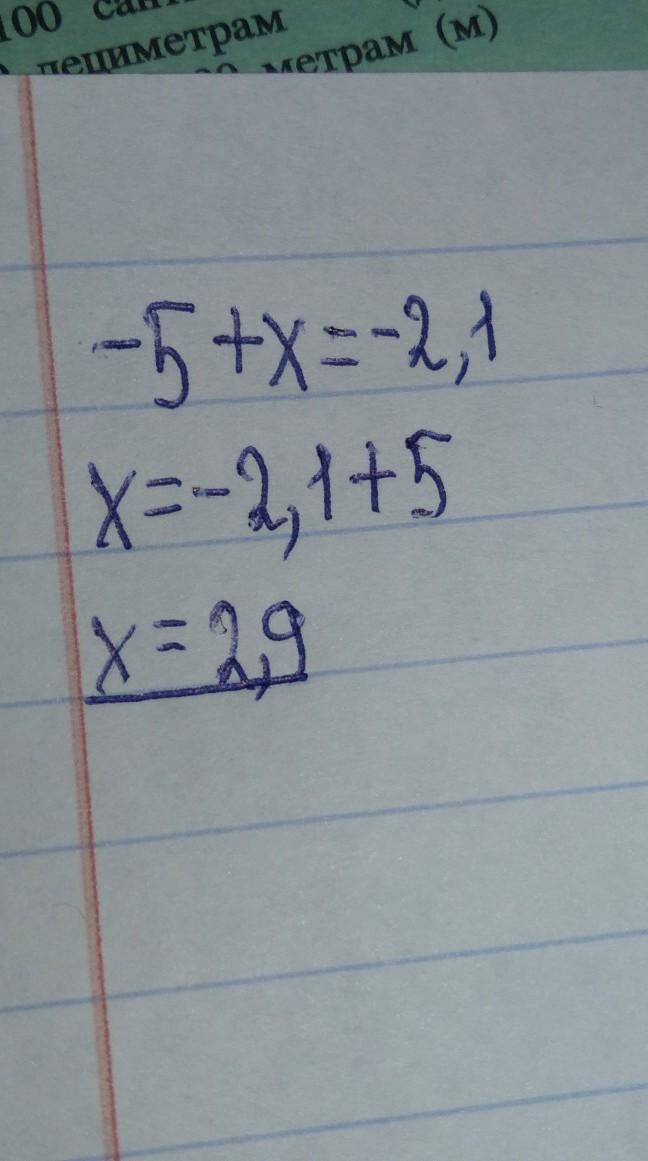 100
дециметрам
метрам (м)
-5+x=-2,1
x=-2,1+5
x=2,9